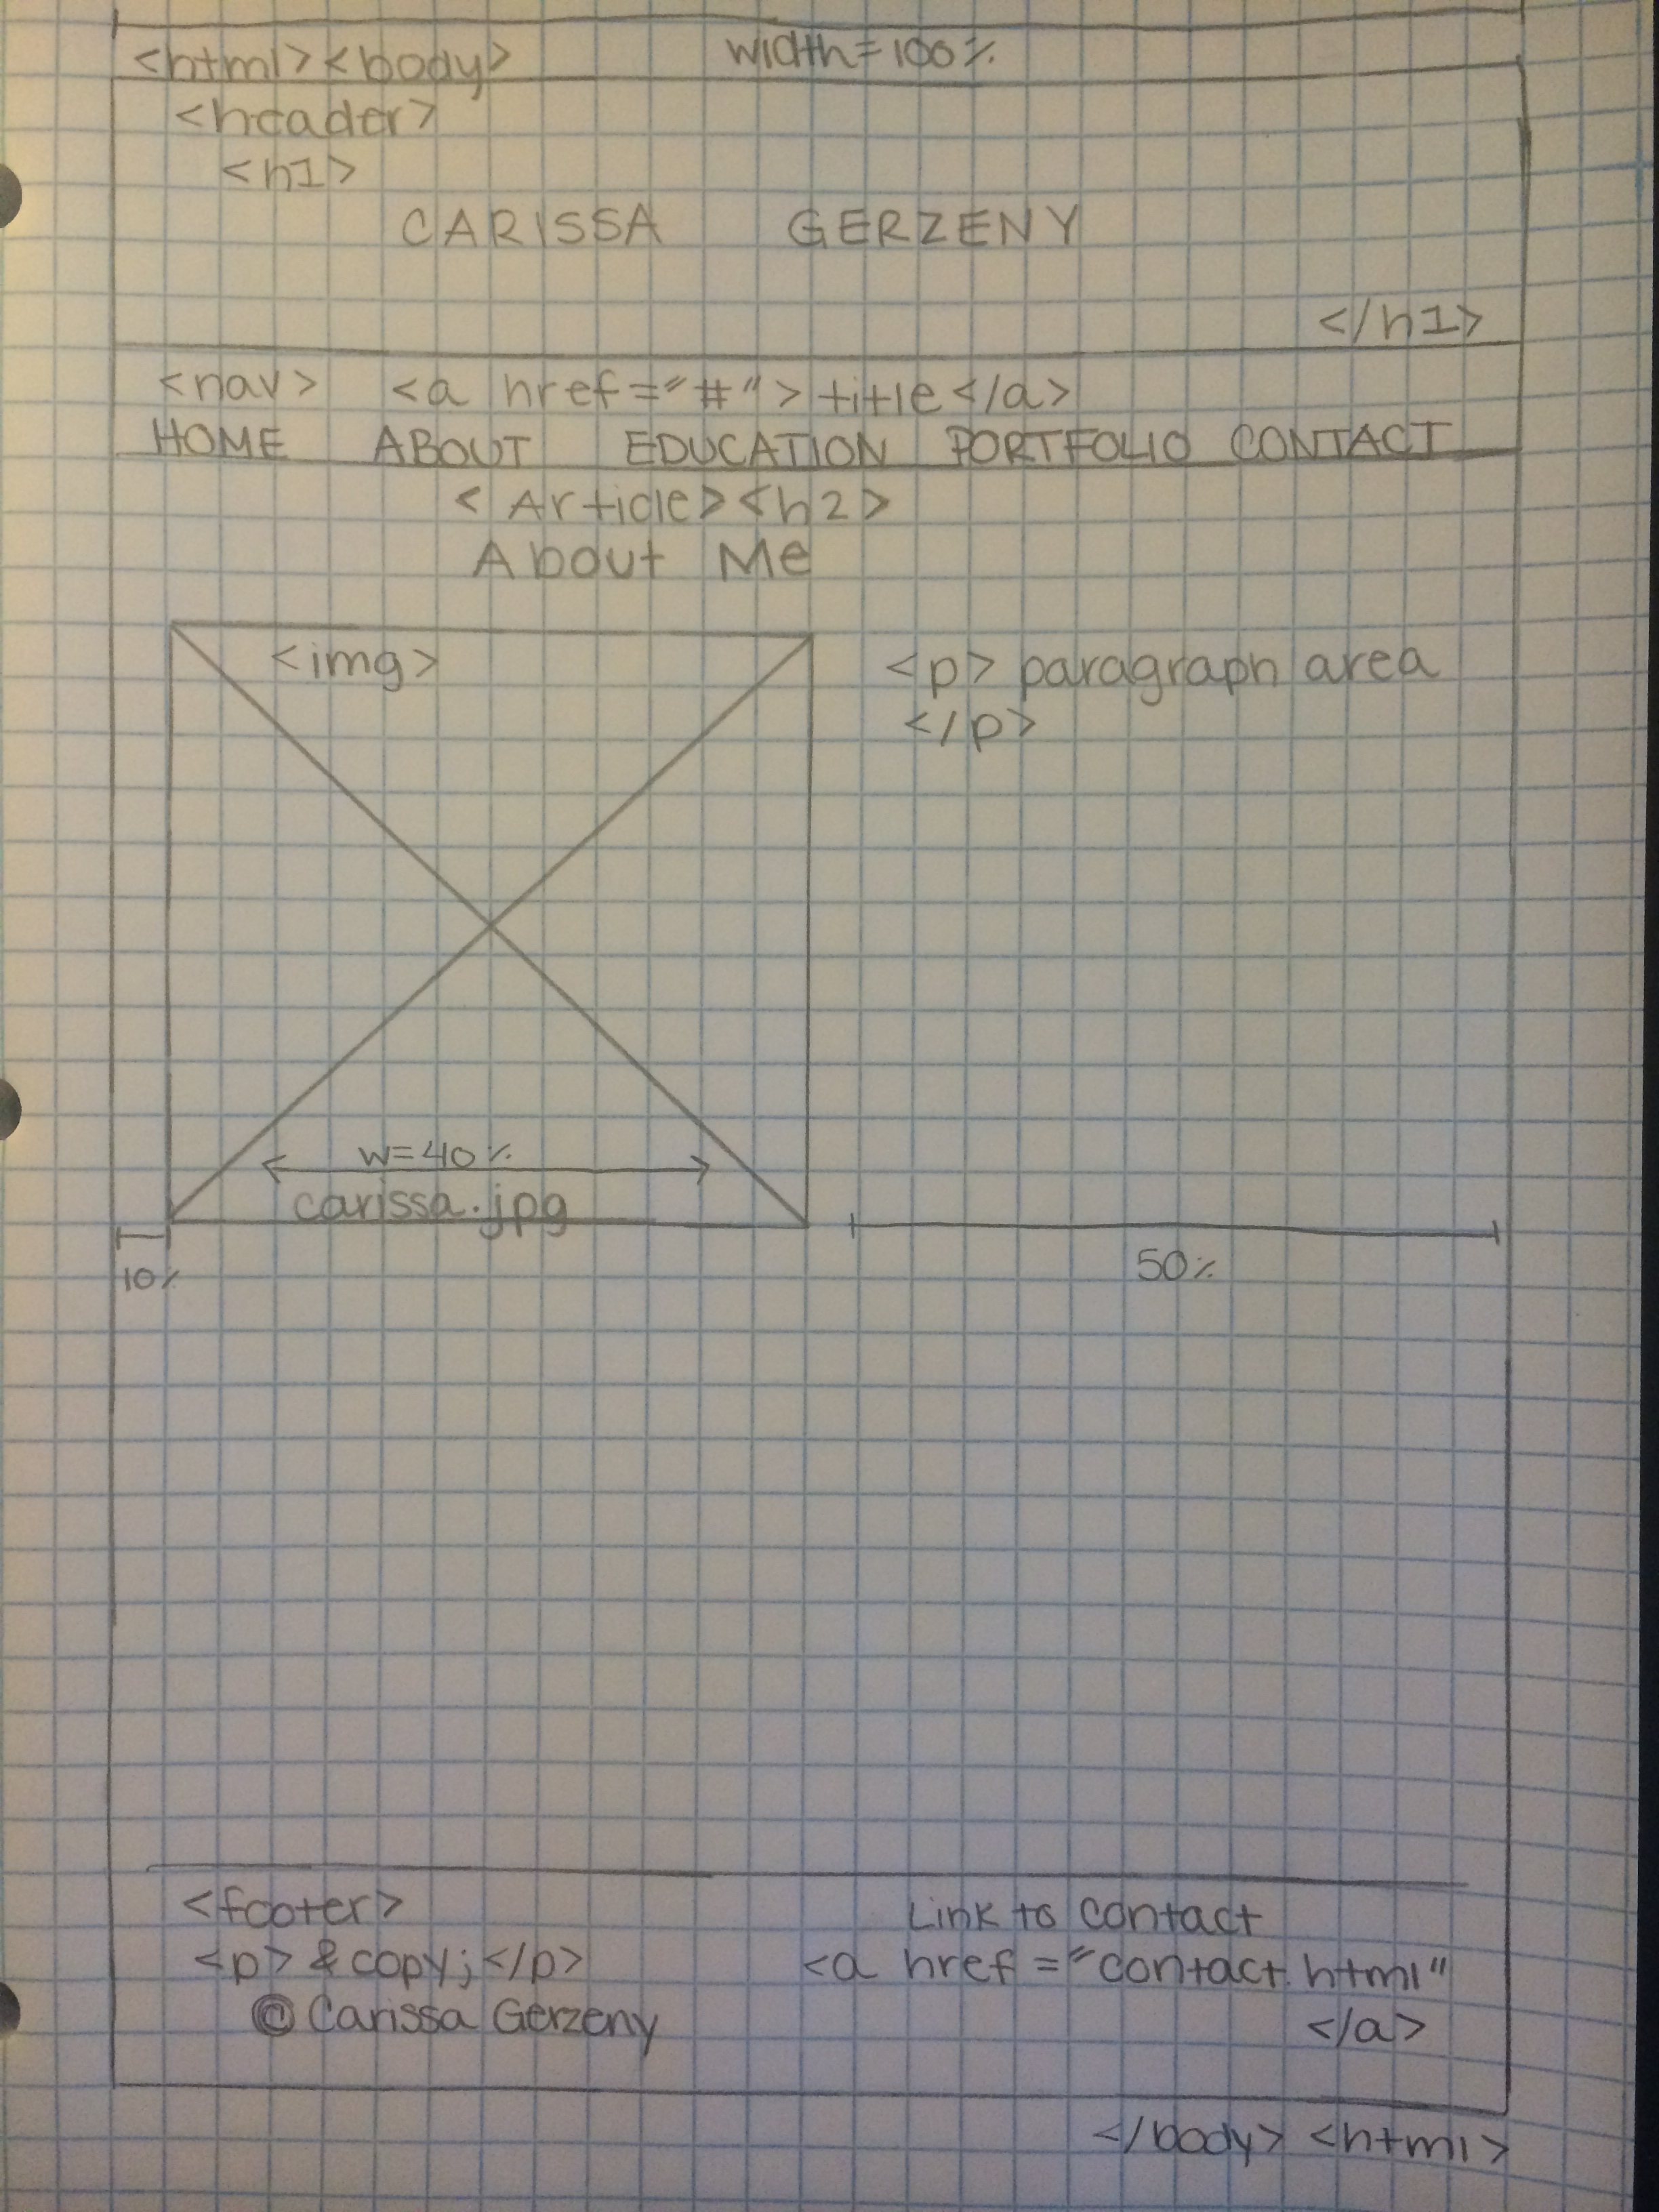 <html><body> width=100%
<header>
<h1>
CARISSA GERZENY
</h1>
<nav> <a href="#">title</a>
HOME ABOUT EDUCATION PORTFOLIO CONTACT
<Article><h2>
About Me
<img>
<p> paragraph area
</p>
w=40%
carissa.jpg
10%
50%
<footer>
<p>&copy;</p>
© Carissa Gerzeny
Link to contact
<a href="contact.html"
</a>
</body> <html>